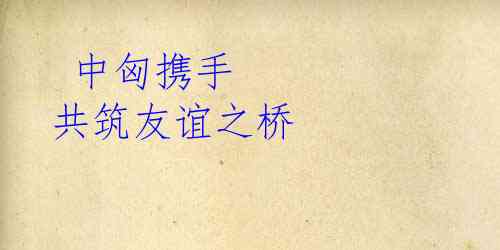 中匈携手
共筑友谊之桥